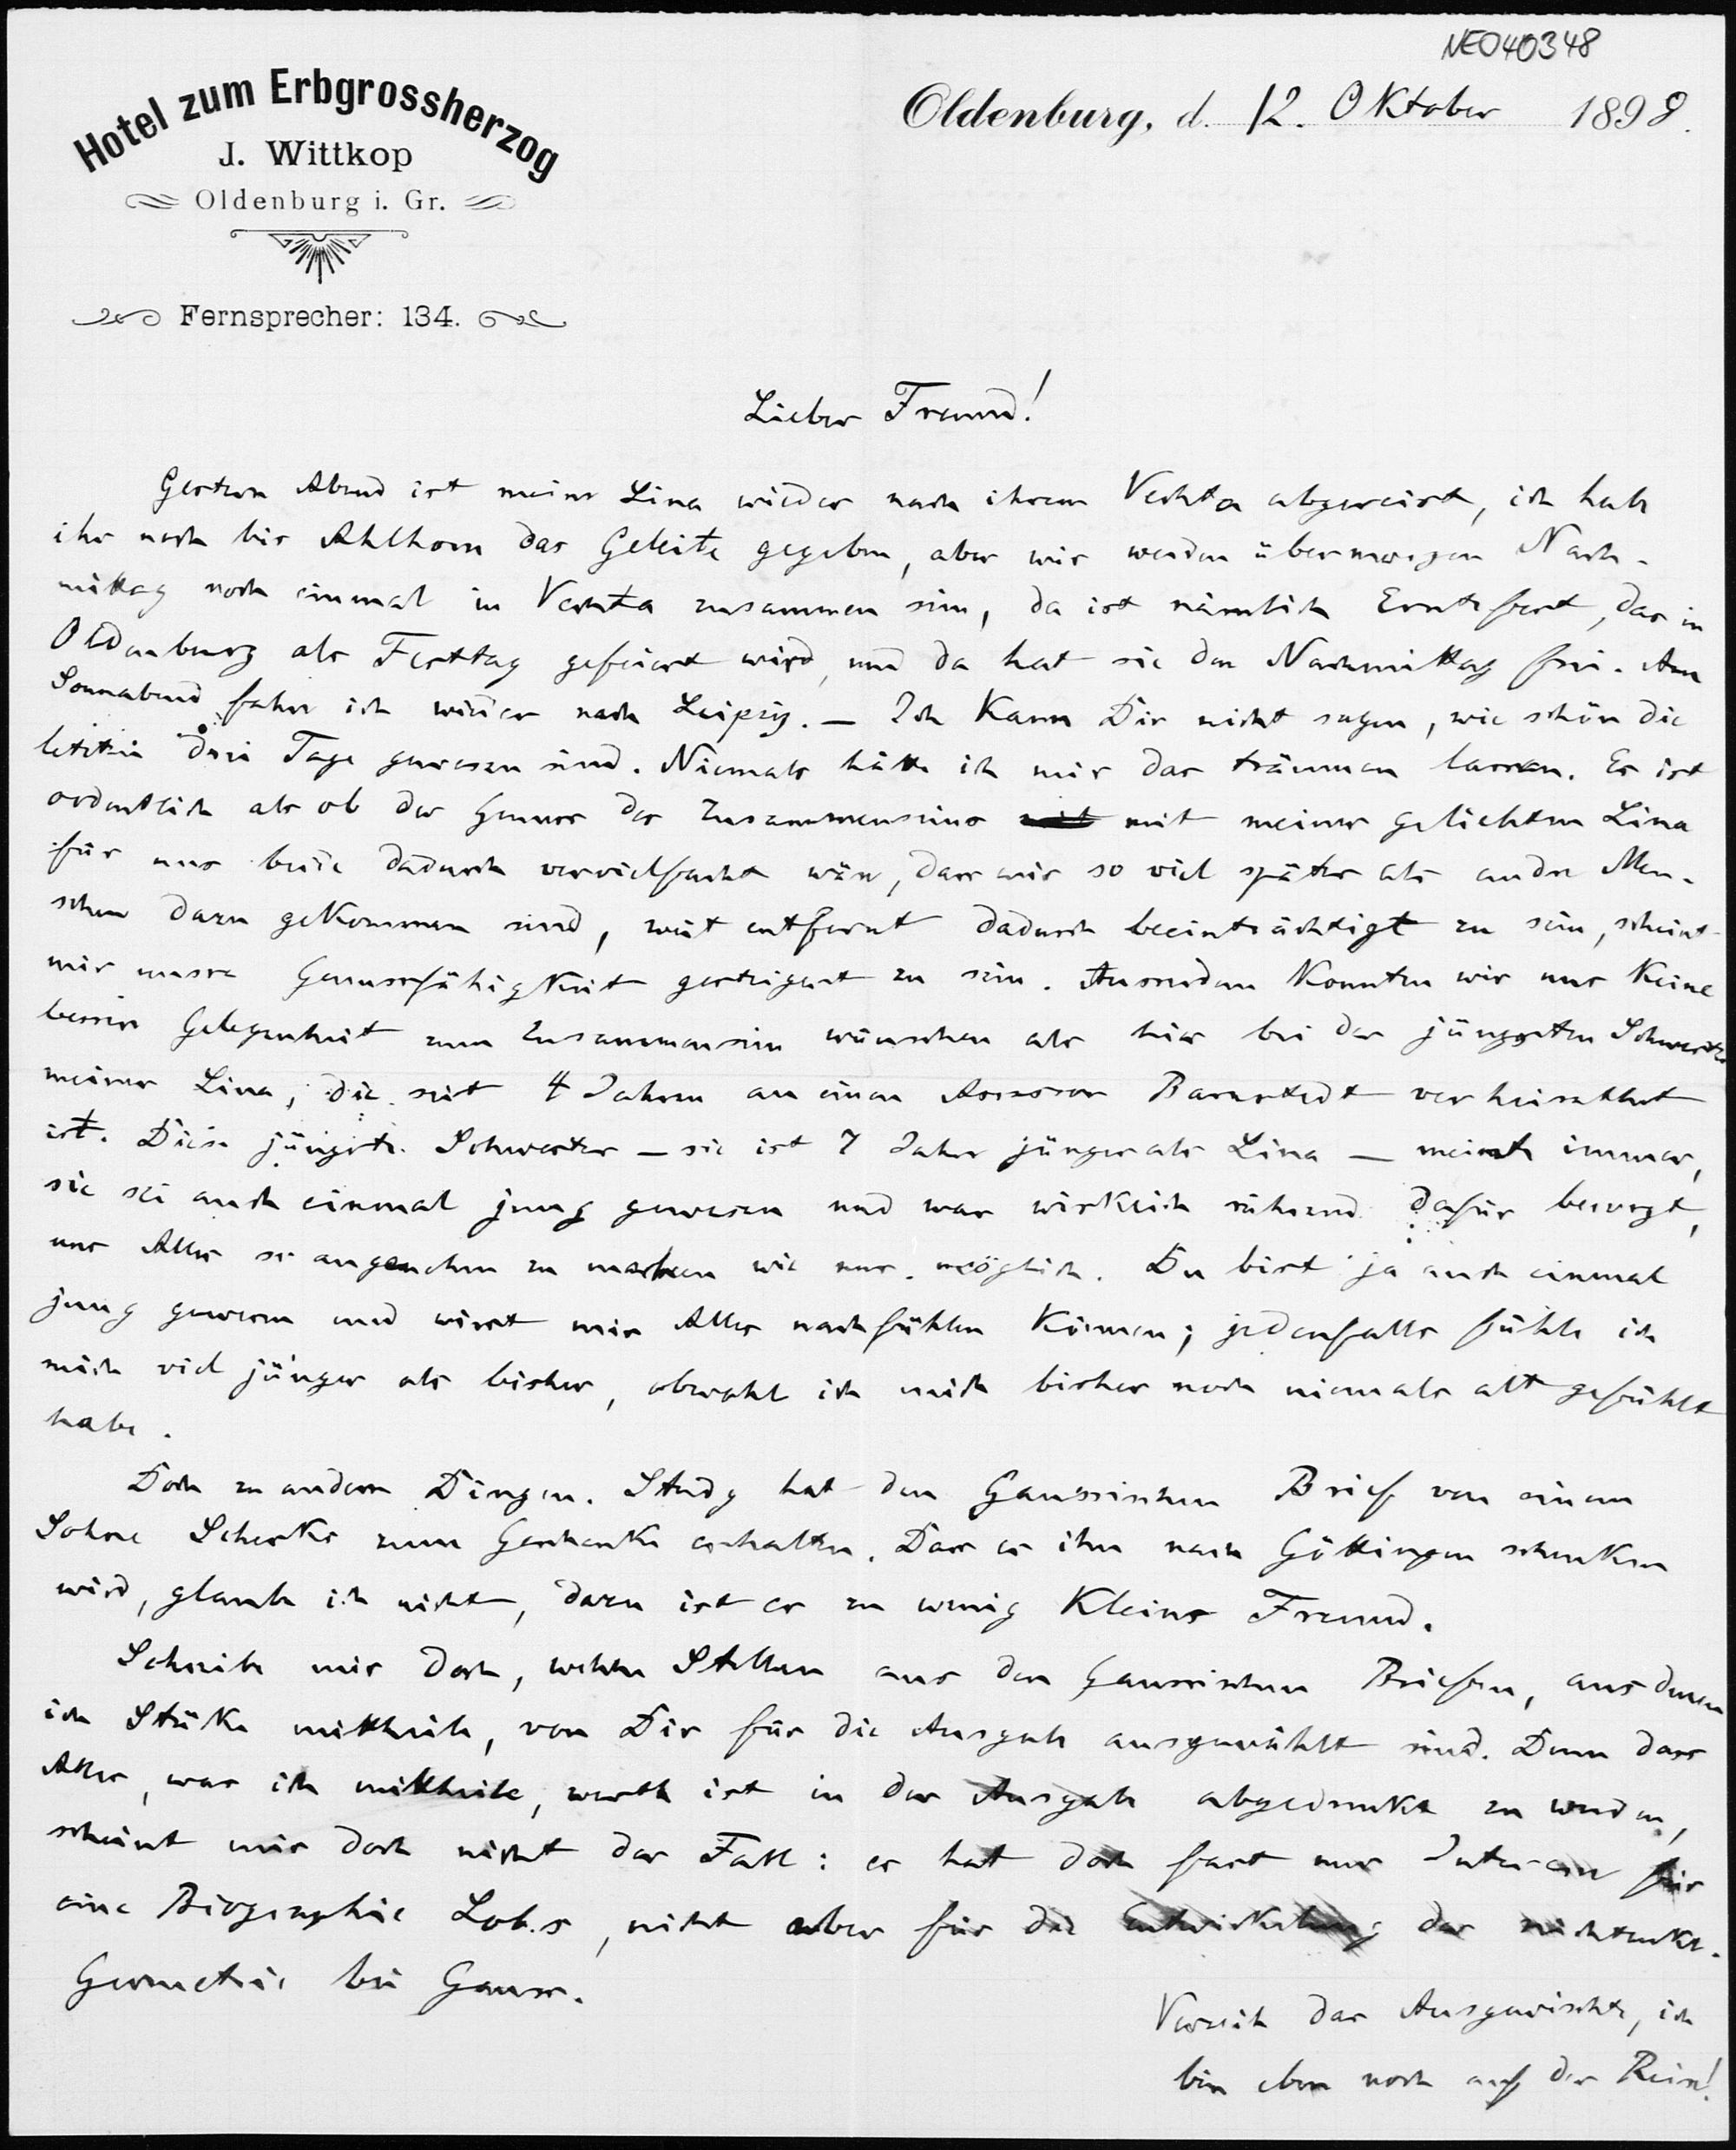 NEO40348
Hotel zum Erbgrossherzog
J. Wittkop
Oldenburg i. Gr.
Fernsprecher: 134.
Oldenburg, d. 12. Oktober 1898.
Lieber Freund!
Gestern Abend ist meine Lina wieder nach ihrem Vechta abgereist, ich habe
ihr noch bis Ahlhorn das Geleite gegeben, aber wir werden übermorgen Nach-
mittag noch einmal in Vechta zusammen sein, da ist nämlich Erntefest, das in
Oldenburg als Festtag gefeiert wird, und da hat sie den Nachmittag frei. Am
Sonnabend fahre ich wieder nach Leipzig. — Ich kann Dir nicht sagen, wie schön die
letzten drei Tage gewesen sind. Niemals hätte ich mir das träumen lassen. Es ist
ordentlich als ob der Genuss des Zusammenseins mit meiner geliebten Lina
für uns beide dadurch vervielfacht wäre, dass wir so viel später als andre Men-
schen dazu gekommen sind, weit entfernt dadurch beeinträchtigt zu sein, scheint
mir unsre Genussfähigkeit gesteigert zu sein. Ausserdem konnten wir uns keine
bessere Gelegenheit zum Zusammensein wünschen als hier bei der jüngsten Schwester
meiner Lina, die seit 4 Jahren an einen Assessor Barnstedt verheirathet
ist. Diese jüngste Schwester — sie ist 7 Jahre jünger als Lina — meinte immer,
sie sei auch einmal jung gewesen und war wirklich rührend dafür besorgt,
uns Alles so angenehm zu machen wie nur möglich. Du bist ja auch einmal
jung gewesen und wirst mir Alles nachfühlen können; jedenfalls fühle ich
mich viel jünger als bisher, obwohl ich mich bisher noch niemals alt gefühlt
habe.
Doch zu andern Dingen. Study hat den Gaussischen Brief von einem
Sohne Scherks zum Geschenke erhalten. Dass er ihn nach Göttingen schenken
wird, glaube ich nicht, dazu ist er zu wenig Kleins Freund.
Schreibe mir doch, welche Stellen aus den Gaussischen Briefen, aus denen
ich Stücke mittheile, von Dir für die Ausgabe ausgewählt sind. Denn dass
Alles, was ich mittheile, werth ist in der Ausgabe abgedruckt zu werden,
scheint mir doch nicht der Fall: es hat doch fast nur Interesse für
eine Biographie Lob.s, nicht aber für die Entwickelung der nichteukl.
Geometrie bei Gauss.
Verzeih das Ausgewischte, ich
bin eben noch auf der Reise!